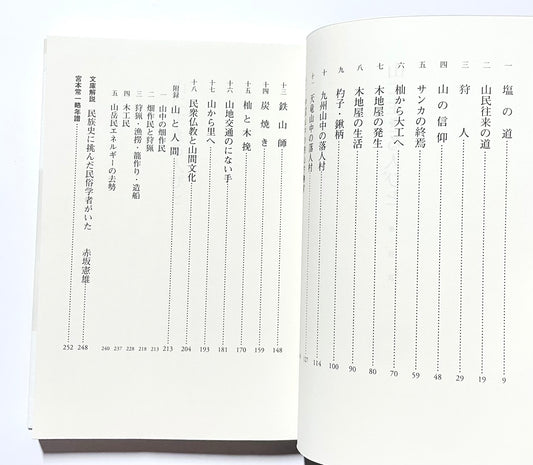 一 塩の道 9
二 山民往来の道 19
三 狩人 29
四 山の信仰 48
五 サンカの終焉 59
六 杣から大工へ 70
七 木地屋の発生 80
八 木地屋の生活 90
九 杓子・鍬柄 100
十 九州山中の落人村 114
十一 天竜山中の落人村 127
十三 鉄山師 148
十四 炭焼き 159
十五 杣と木挽 170
十六 山地交通のにない手 181
十七 山から里へ 193
十八 民衆仏教と山間文化 204
附録 山と人間 213
一 山中の畑作民 213
二 畑作民と狩猟 218
三 狩猟・漁撈・籠作り・造船 228
四 木工民 237
五 山岳民エネルギーの去勢 240
文庫解説 民族史に挑んだ民俗学者がいた 赤坂憲雄 248
宮本常一略年譜 252